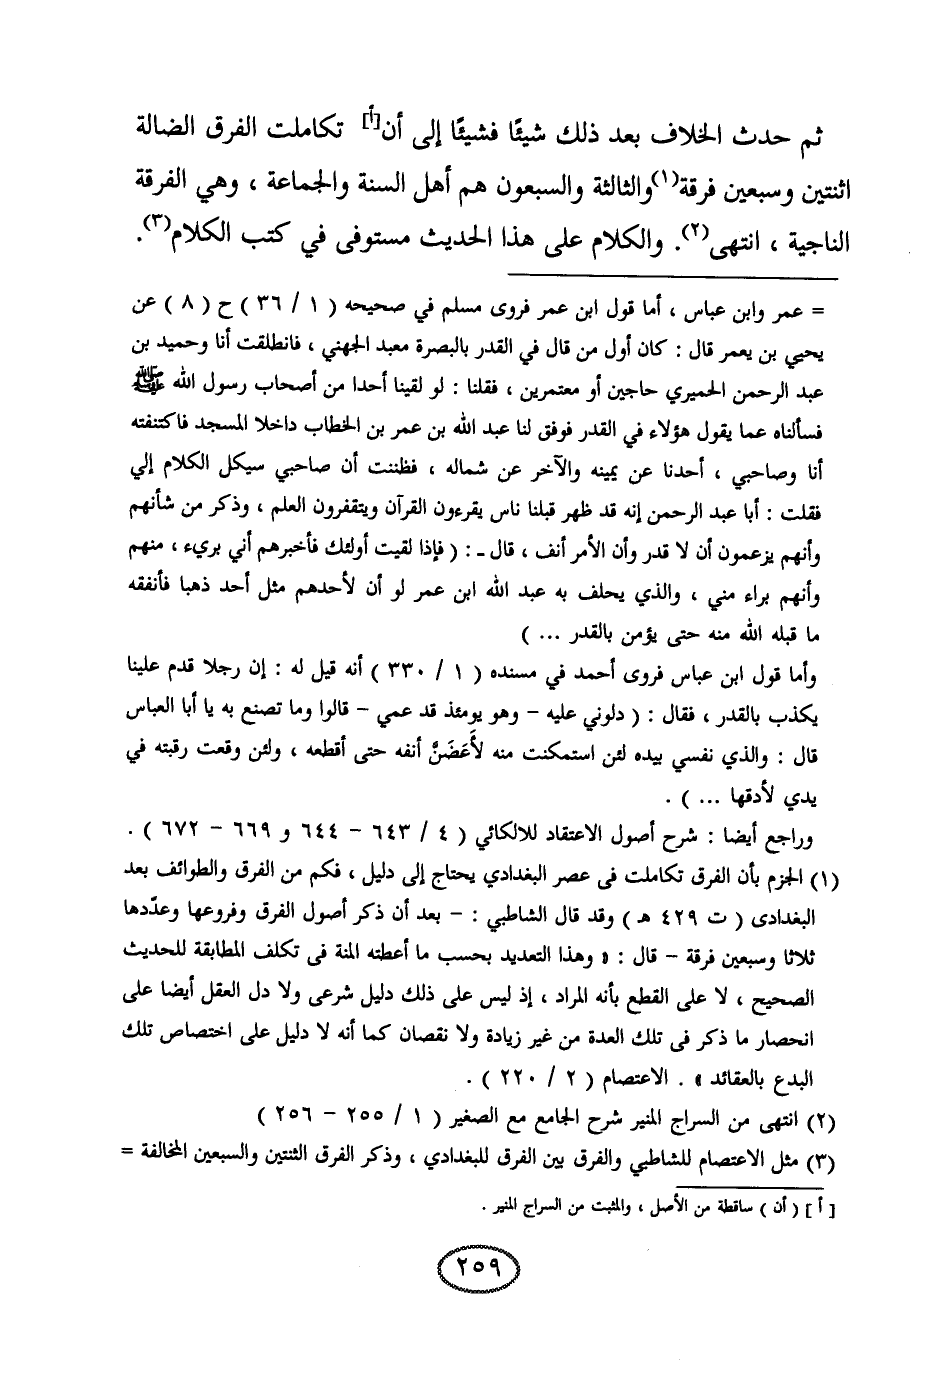 ثم حدث الخلاف بعد ذلك شيئًا فشيئًا إلى أن[أ] تكاملت الفرق الضالة
اثنتين وسبعين فرقة(١)والثالثة والسبعون هم أهل السنة والجماعة ، وهي الفرقة
الناجية ، انتهى(٢). والكلام على هذا الحديث مستوفى في كتب الكلام(٣).
= عمر وابن عباس ، أما قول ابن عمر فروى مسلم في صحيحه ( ١ / ٣٦ ) ح ( ٨ ) عن
يحيي بن يعمر قال : كان أول من قال في القدر بالبصرة معبد الجهني ، فانطلقت أنا وحميد بن
عبد الرحمن الحميري حاجين أو معتمرين ، فقلنا : لو لقينا أحدا من أصحاب رسول الله ﷺ
فسألناه عما يقول هؤلاء في القدر فوفق لنا عبد الله بن عمر بن الخطاب داخلا المسجد فاكتنفته
أنا وصاحبي ، أحدنا عن يمينه والآخر عن شماله ، فظننت أن صاحبي سيكل الكلام إلي
فقلت : أبا عبد الرحمن إنه قد ظهر قبلنا ناس يقرءون القرآن ويتقفرون العلم ، وذكر من شأنهم
وأنهم يزعمون أن لا قدر وأن الأمر أنف ، قال ـ : ( فإذا لقيت أولئك فأخبرهم أني بريء ، منهم
وأنهم براء مني ، والذي يحلف به عبد الله ابن عمر لو أن لأحدهم مثل أحد ذهبا فأنفقه
ما قبله الله منه حتى يؤمن بالقدر ... )
وأما قول ابن عباس فروى أحمد في مسنده ( ١ / ٣٣٠ ) أنه قيل له : إن رجلا قدم علينا
يكذب بالقدر ، فقال : ( دلوني عليه – وهو يومئذ قد عمي – قالوا وما تصنع به يا أبا العباس
قال : والذي نفسي بيده لئن استمكنت منه لأَعَضَنَّ أنفه حتى أقطعه ، ولئن وقعت رقبته في
يدي لأدقها ... ) .
وراجع أيضا : شرح أصول الاعتقاد للالكائي ( ٤ / ٦٤٣ – ٦٤٤ و ٦٦٩ – ٦٧٢ ) .
(١) الجزم بأن الفرق تكاملت فى عصر البغدادي يحتاج إلى دليل ، فكم من الفرق والطوائف بعد
البغدادى ( ت ٤٢٩ هـ ) وقد قال الشاطبي : – بعد أن ذكر أصول الفرق وفروعها وعدّدها
ثلاثا وسبعين فرقة – قال : « وهذا التعديد بحسب ما أعطته المنة فى تكلف المطابقة للحديث
الصحيح ، لا على القطع بأنه المراد ، إذ ليس على ذلك دليل شرعى ولا دل العقل أيضا على
انحصار ما ذكر فى تلك العدة من غير زيادة ولا نقصان كما أنه لا دليل على اختصاص تلك
البدع بالعقائد » . الاعتصام ( ٢ / ٢٢٠ ) .
(٢) انتهى من السراج المنير شرح الجامع مع الصغير ( ١ / ٢٥٥ – ٢٥٦ )
(٣) مثل الاعتصام للشاطبي والفرق بين الفرق للبغدادي ، وذكر الفرق الثنتين والسبعين المخالفة =
[ أ ] ( أن ) ساقطة من الأصل ، والمثبت من السراج المنير .
٢٥٩